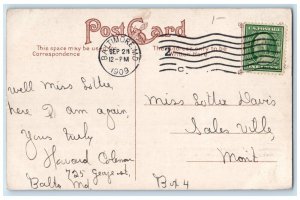 1-
Post Card
This space may be used for
Correspondence
BALTIMORE, MD.
SEP 24
12-PM
1909
2
C.
Well Miss Lottie
here I am again,
Yours truly
Howard Coleman
725 George st,
Balto Md
Miss Lottie Davis
Salesville,
Mont
Box 4